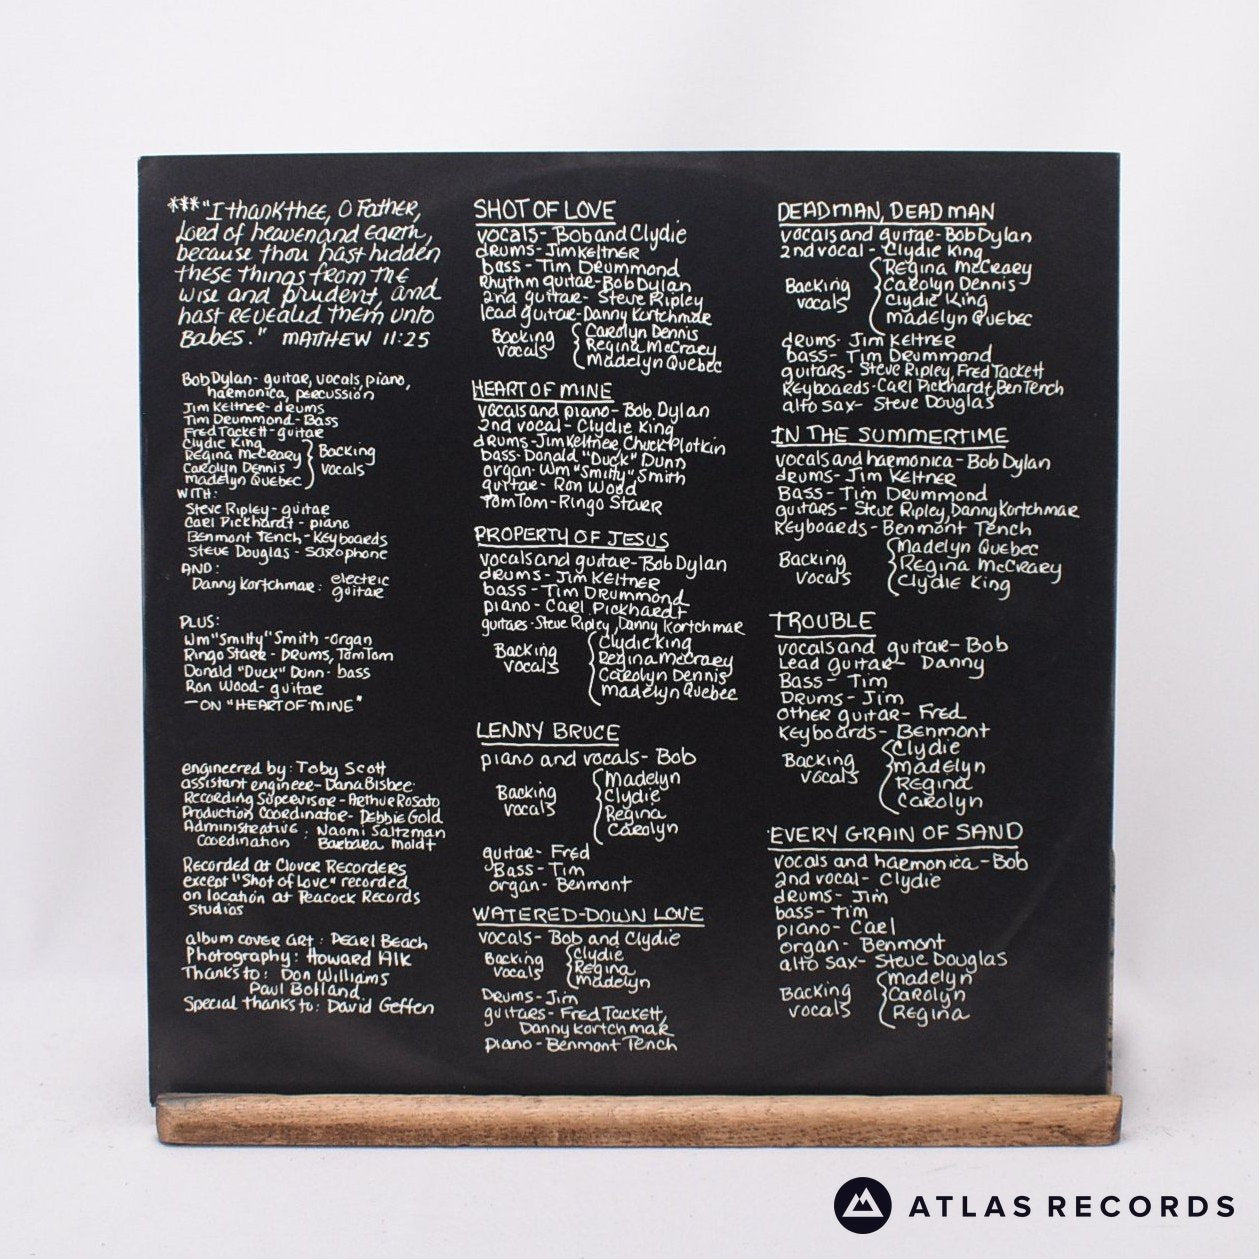 ***"I thank thee, O Father,
Lord of heaven and Earth,
because thou hast hidden
these things from the
wise and prudent, and
hast revealed them unto
Babes." MATTHEW 11:25
Bob Dylan- guitar, vocals, piano,
harmonica, percussion
Jim Keltner- drums
Tim Drummond- Bass
Fred Tackett- guitar
Clydie King
Regina McCrary
Carolyn Dennis
Madelyn Quebec
Backing
vocals
WITH:
Steve Ripley- guitar
Carl Pickhardt - piano
Benmont Tench - Keyboards
Steve Douglas - Saxophone
AND:
Danny Kortchmar: electric
guitar
PLUS:
Wm "Smitty" Smith - organ
Ringo Starr - Drums, TomTom
Donald "Duck" Dunn- bass
Ron Wood- guitar
—ON "HEART OF MINE"
engineered by: Toby Scott
assistant engineer- Dana Bisbee
Recording Supervisor- Arthur Rosato
Production Coordinator- Debbie Gold
Administrative : Naomi Saltzman
Coordination Barbara Moldt
Recorded at Clover Recorders
except "Shot of Love" recorded
on location at Peacock Records
studios
album cover art: Pearl Beach
Photography: Howard Alk
Thanks to: Don Williams
Paul Bolland
Special thanks to: David Geffen
SHOT OF LOVE
vocals- Bob and Clydie
drums- Jim Keltner
bass- Tim Drummond
Rhythm guitar- Bob Dylan
2nd guitar- Steve Ripley
lead guitar- Danny Kortchmar
Backing
vocals
Carolyn Dennis
Regina McCrary
Madelyn Quebec
HEART OF MINE
vocals and piano- Bob Dylan
2nd vocal- Clydie King
drums- Jim Keltner, Chuck Plotkin
bass- Donald "Duck" Dunn
organ- Wm "Smitty" Smith
guitar- Ron Wood
TomTom- Ringo Starr
PROPERTY OF JESUS
vocals and guitar- Bob Dylan
drums- Jim Keltner
bass- Tim Drummond
piano- Carl Pickhardt
guitars- Steve Ripley, Danny Kortchmar
Backing
vocals
Clydie King
Regina McCrary
Carolyn Dennis
Madelyn Quebec
LENNY BRUCE
piano and vocals- Bob
Backing
vocals
Madelyn
Clydie
Regina
Carolyn
guitar- Fred
Bass- Tim
organ- Benmont
WATERED-DOWN LOVE
vocals- Bob and Clydie
Backing
vocals
Clydie
Regina
Madelyn
Drums- Jim
guitars- Fred Tackett,
Danny Kortchmar
piano- Benmont Tench
DEAD MAN, DEAD MAN
vocals and guitar- Bob Dylan
2nd vocal- Clydie King
Backing
vocals
Regina McCrary
Carolyn Dennis
Clydie King
Madelyn Quebec
drums- Jim Keltner
bass- Tim Drummond
guitars- Steve Ripley, Fred Tackett
Keyboards- Carl Pickhardt, Ben Tench
alto sax- Steve Douglas
IN THE SUMMERTIME
vocals and harmonica- Bob Dylan
drums- Jim Keltner
Bass- Tim Drummond
guitars- Steve Ripley, Danny Kortchmar
Keyboards- Benmont Tench
Backing
vocals
Madelyn Quebec
Regina McCrary
Clydie King
TROUBLE
vocals and guitar- Bob
Lead guitar- Danny
Bass- Tim
Drums- Jim
Other guitar- Fred
Keyboards- Benmont
Backing
vocals
Clydie
Madelyn
Regina
Carolyn
EVERY GRAIN OF SAND
vocals and harmonica- Bob
2nd vocal- Clydie
drums- Jim
bass- Tim
piano- Carl
organ- Benmont
alto sax- Steve Douglas
Backing
vocals
Madelyn
Carolyn
Regina
ATLAS RECORDS